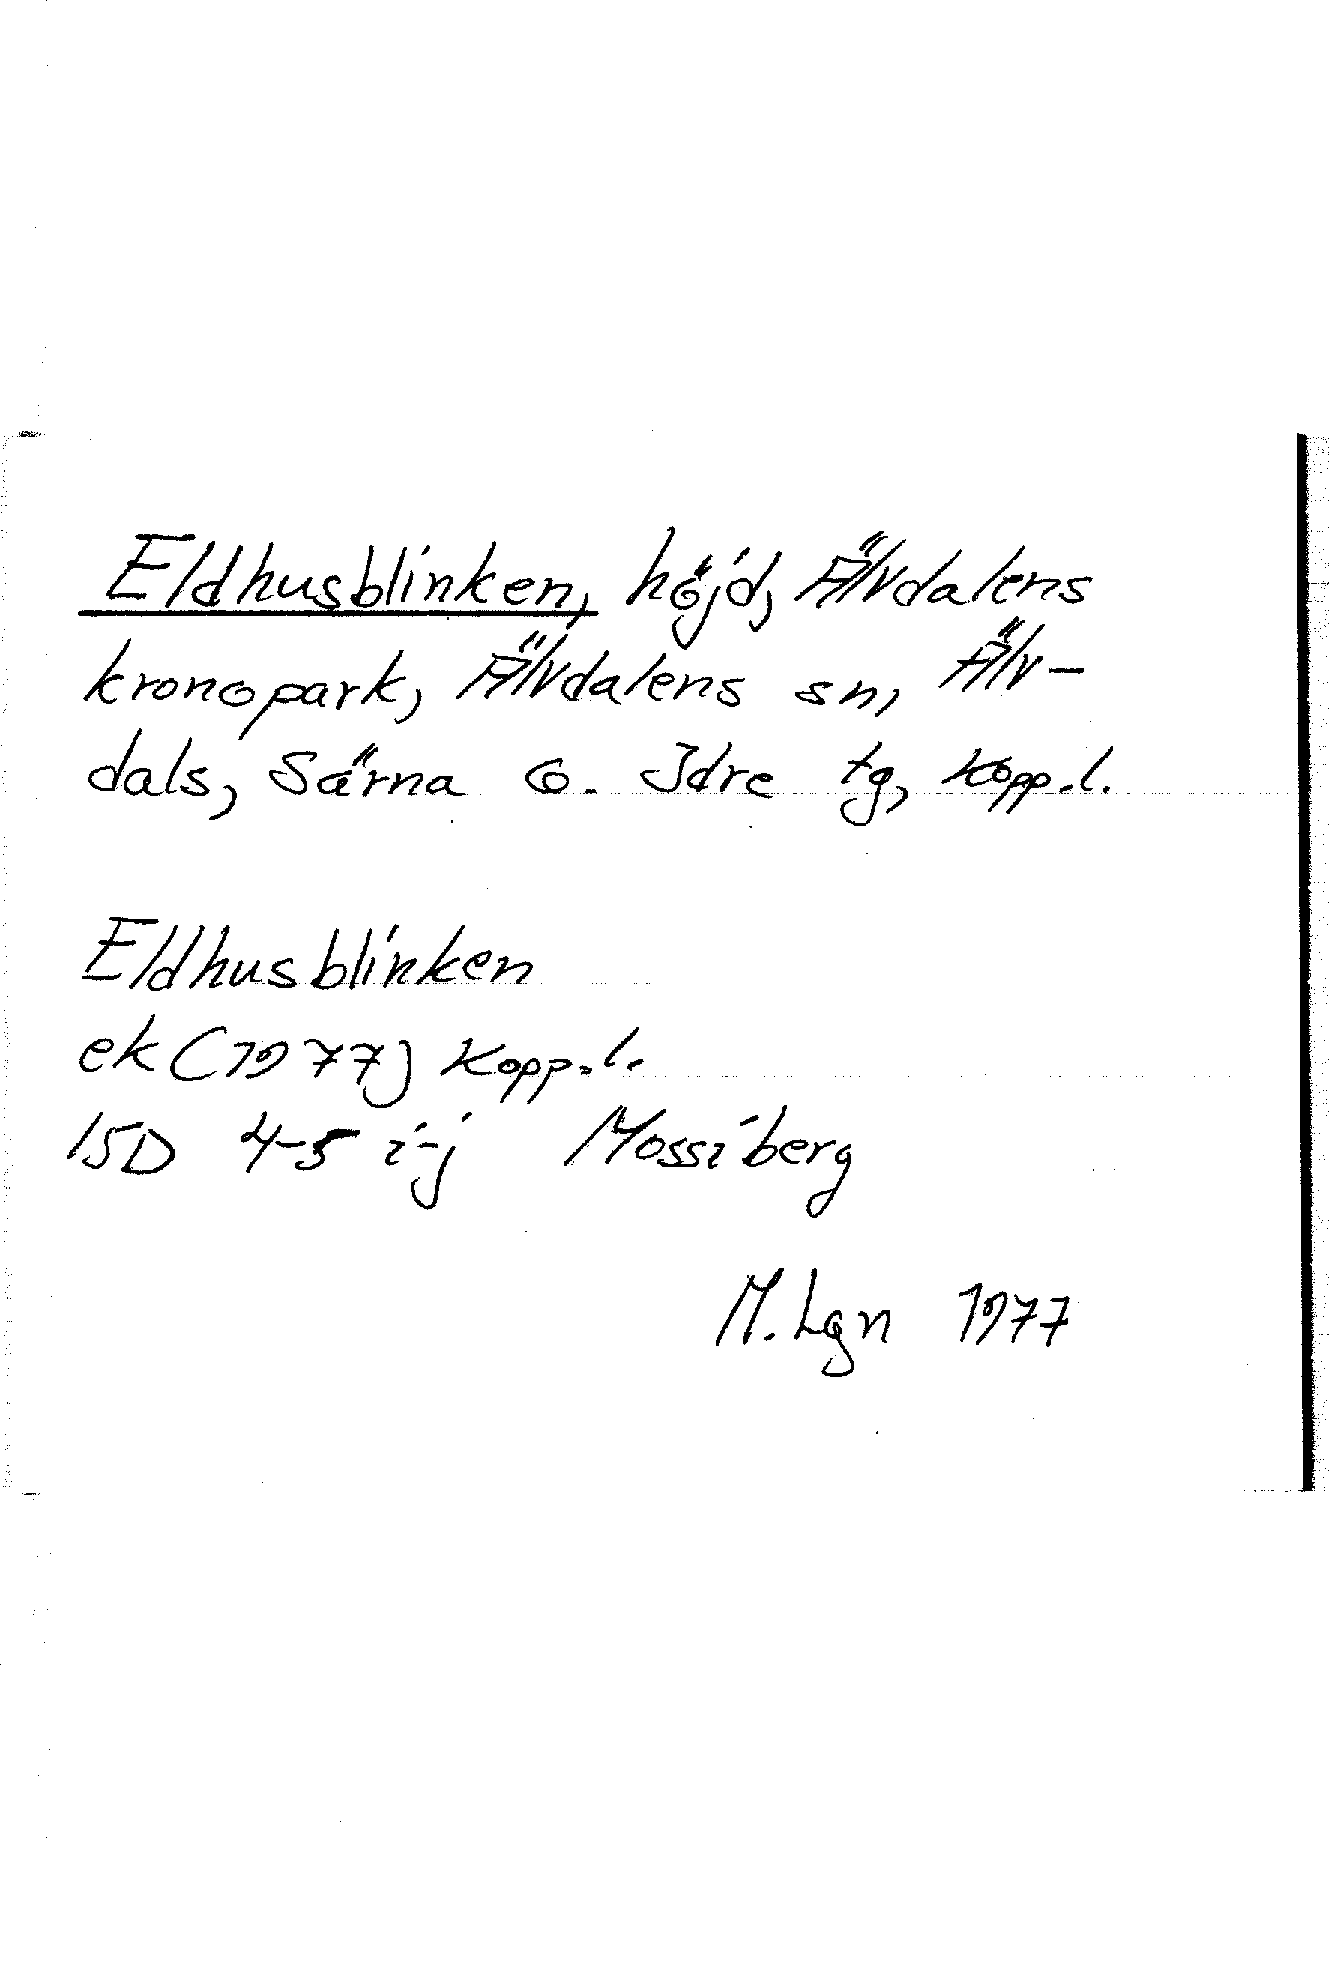 Eldhusblinken, höjd, Älvdalens
kronopark, Älvdalens sn, Älv-
dals, Särna o. Idre tg, Kopp.l.
Eldhusblinken
ek (1977) Kopp.l.
15D 4-5 i-j Mossiberg
M. Lgn 1977